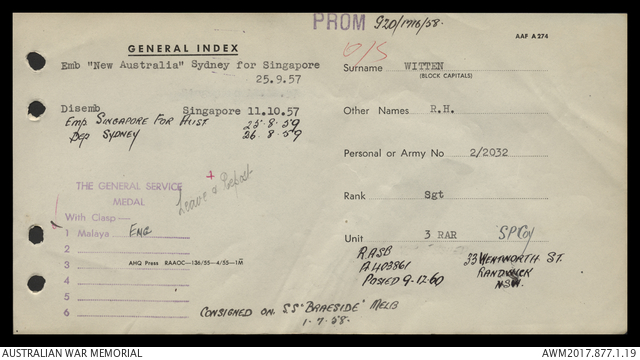 PROM 920/1716/58.
AAF A 274
GENERAL INDEX
O/S
Emb "New Australia" Sydney for Singapore
25.9.57
Surname WITTEN
(BLOCK CAPITALS)
Disemb Singapore 11.10.57
Emp SINGAPORE FOR AUST 25.8.59
Dep SYDNEY 26.8.59
Other Names R.H.
Personal or Army No 2/2032
Leave &
THE GENERAL SERVICE
MEDAL
With Clasp—
1 Malaya ENG
2
3
4
5
6
AHQ Press RAAOC—136/55—4/55—1M
Rank Sgt
Unit 3 RAR SP Coy
R.ASB
A403861
POSTED 9-12-60
33 WENTWORTH ST.
RANDWICK
NSW.
CONSIGNED ON SS "BRAESIDE" MELB
1.7.58.
AUSTRALIAN WAR MEMORIAL
AWM2017.877.1.19